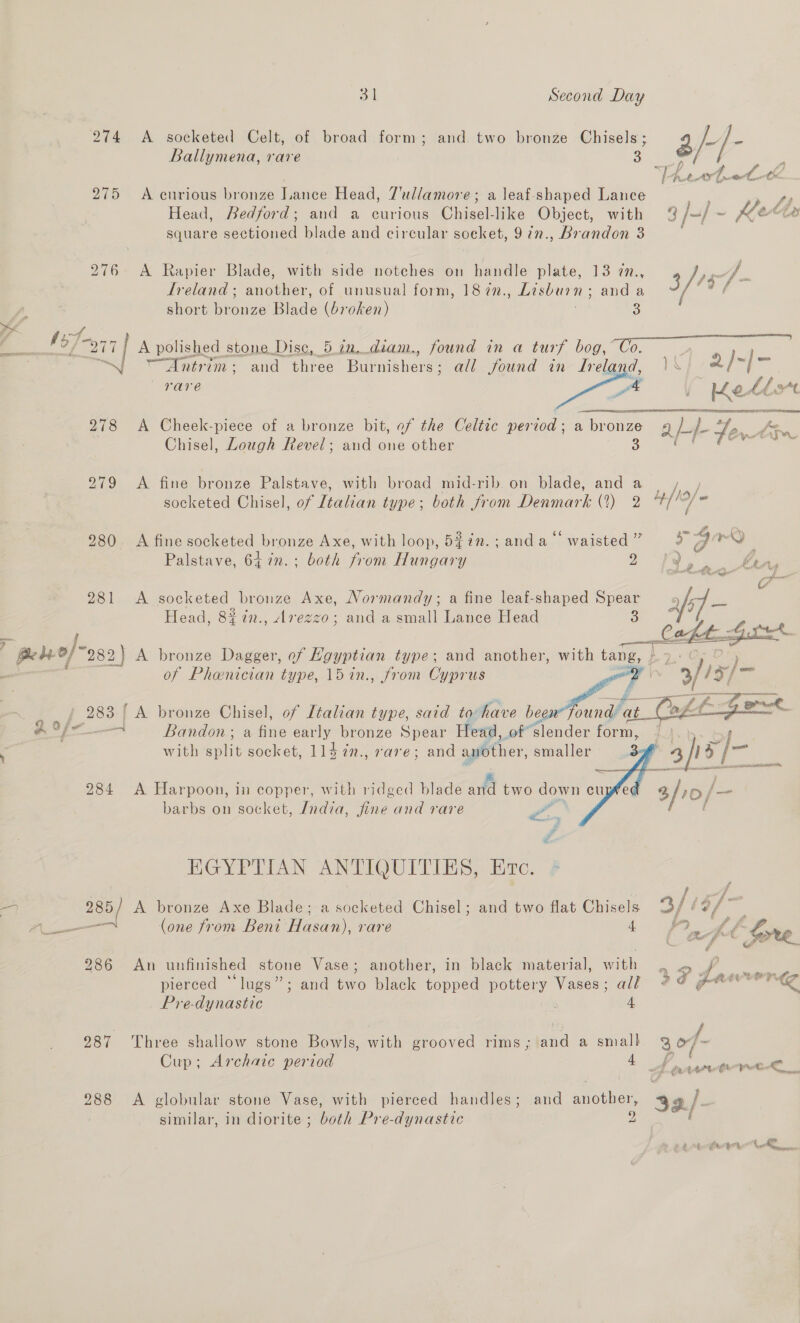 31 Second Day
274 A socketed Celt, of broad form; and two bronze Chisels; 2/-/-
Ballymena, rare 3
275 A curious bronze Lance Head, Tullamore; a leaf-shaped Lance
Head, Bedford; and a curious Chisel-like Object, with 3/-/-
square sectioned blade and circular socket, 9 in., Brandon 3
276 A Rapier Blade, with side notches on handle plate, 13 in.,
Ireland; another, of unusual form, 18 in., Lisburn; and a
short bronze Blade (broken) 3
277 A polished stone Disc, 5 in. diam., found in a turf bog, Co.
Antrim; and three Burnishers; all found in Ireland, 2/-/-
rare 4
278 A Cheek-piece of a bronze bit, of the Celtic period; a bronze 2/-/-
Chisel, Lough Revel; and one other 3
279 A fine bronze Palstave, with broad mid-rib on blade, and a
socketed Chisel, of Italian type; both from Denmark (?) 2 4/10/-
280 A fine socketed bronze Axe, with loop, 5¾ in.; and a “waisted”
Palstave, 6¼ in.; both from Hungary 2
281 A socketed bronze Axe, Normandy; a fine leaf-shaped Spear
Head, 8¾ in., Arezzo; and a small Lance Head 3
Capt Gore
282 A bronze Dagger, of Egyptian type; and another, with tang,
of Phœnician type, 15 in., from Cyprus 2 3/15/-
283 A bronze Chisel, of Italian type, said to have been found at Capt Gore
Bandon; a fine early bronze Spear Head, of slender form,
with split socket, 11½ in., rare; and another, smaller 3 3/15/-
284 A Harpoon, in copper, with ridged blade and two down curved 3/10/-
barbs on socket, India, fine and rare
EGYPTIAN ANTIQUITIES, ETC.
285 A bronze Axe Blade; a socketed Chisel; and two flat Chisels
(one from Beni Hasan), rare 4 Capt Gore
286 An unfinished stone Vase; another, in black material, with
pierced “lugs”; and two black topped pottery Vases; all
Pre-dynastic 4
287 Three shallow stone Bowls, with grooved rims; and a small
Cup; Archaic period 4
288 A globular stone Vase, with pierced handles; and another, 32/-
similar, in diorite; both Pre-dynastic 2